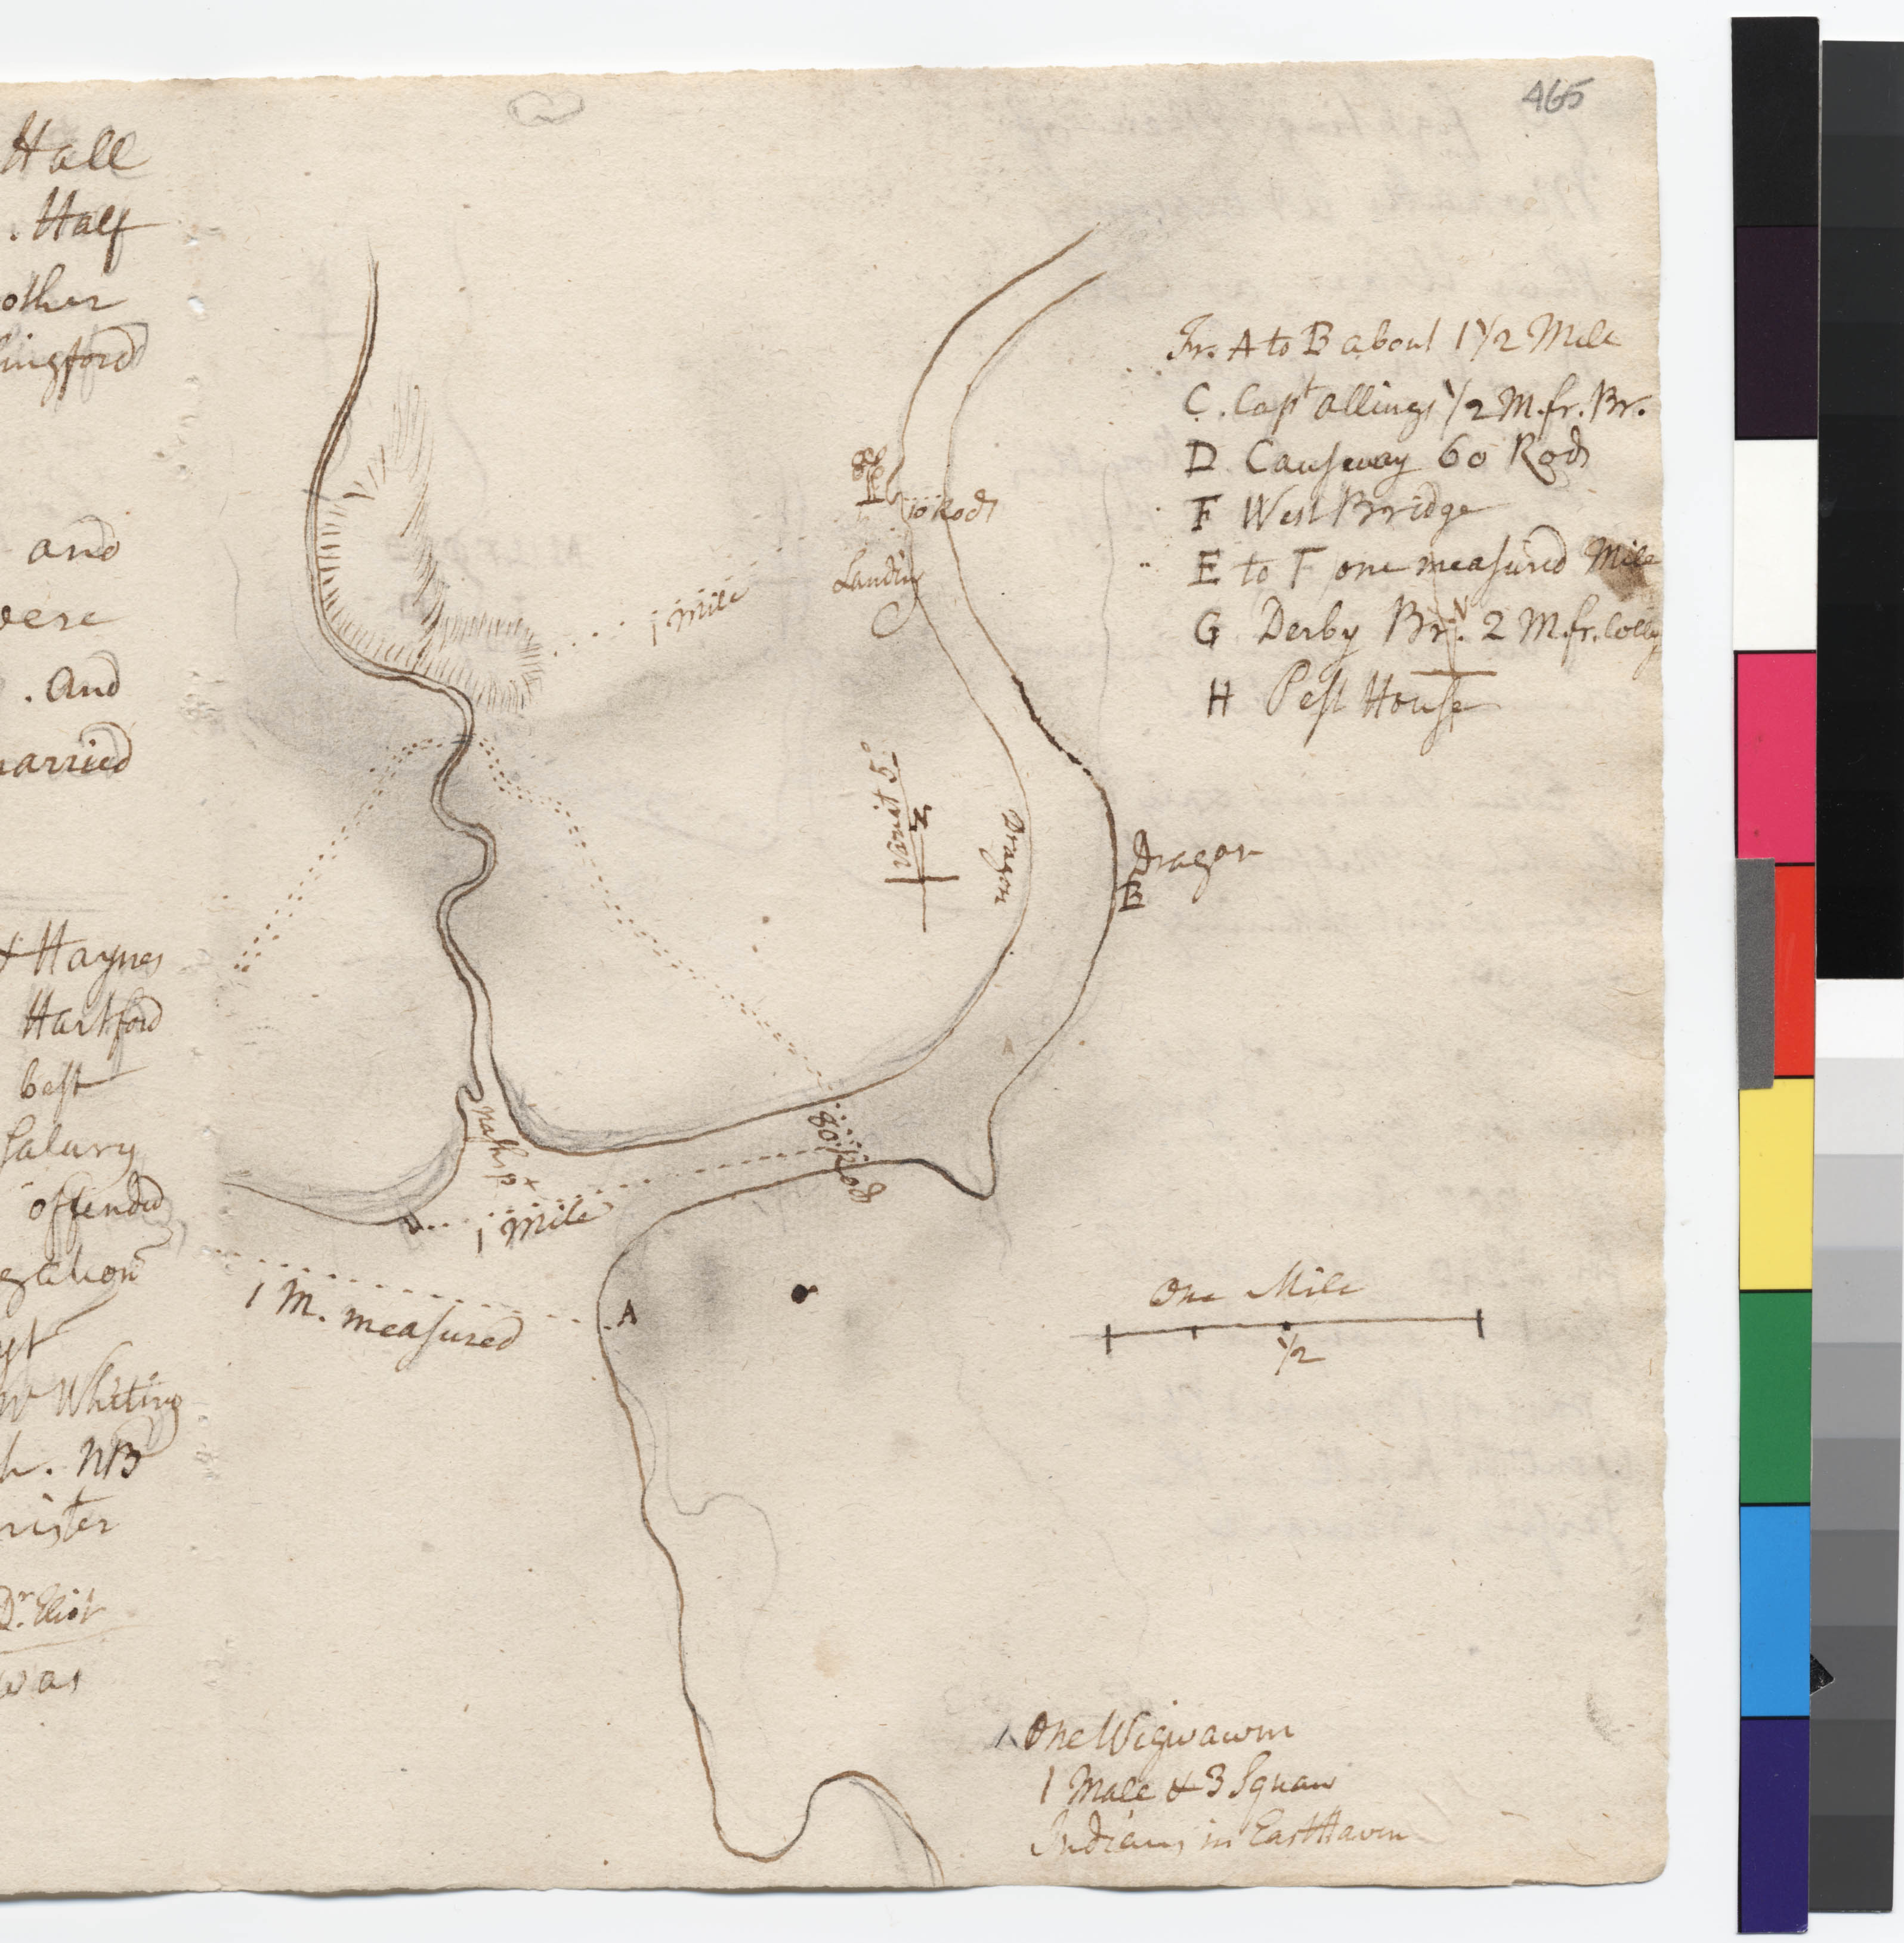 465
Hall
. Half
other
lingford
and
were
. And
married
& Haynes
Hartford
best
Salary
offended
gation
Whiting
h. NB
Dr. Eliot
was
Fr. A to B about 1 1/2 Mile
C. Capt Allings 1/2 M. fr. Br.
D Causeway 60 Rods
F West Bridge
E to F one measured Mile
G Derby Br. 2 M. fr. Colleg
H Pest House
N
10 Rods
Landing
1 Mile
Variat 5°
N
Dragon
Dragon
B
A
80 Rod
1 Mile
1 M. measured
A
One Mile
1/2
One Wigwawm
1 Male & 3 Squaw
Indians in East Haven